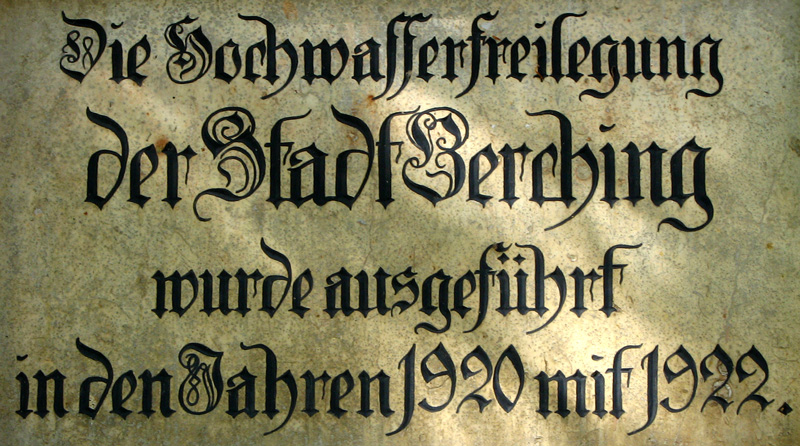 Die Hochwasserfreilegung
der Stadt Berching
wurde ausgeführt
in den Jahren 1920 mit 1922.